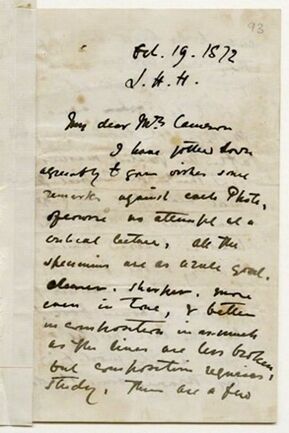 93
Oct. 19. 1872
J. H. H.
My dear Mrs Cameron
I have jotted down
agreeably to your wishes some
remarks against each Photo,
of course no attempt at a
critical lecture, all the
specimens are as a rule good.
cleaner. sharper. more
even in tone, & better
in composition in as much
as the lines are less broken,
but composition requires
study. There are a few